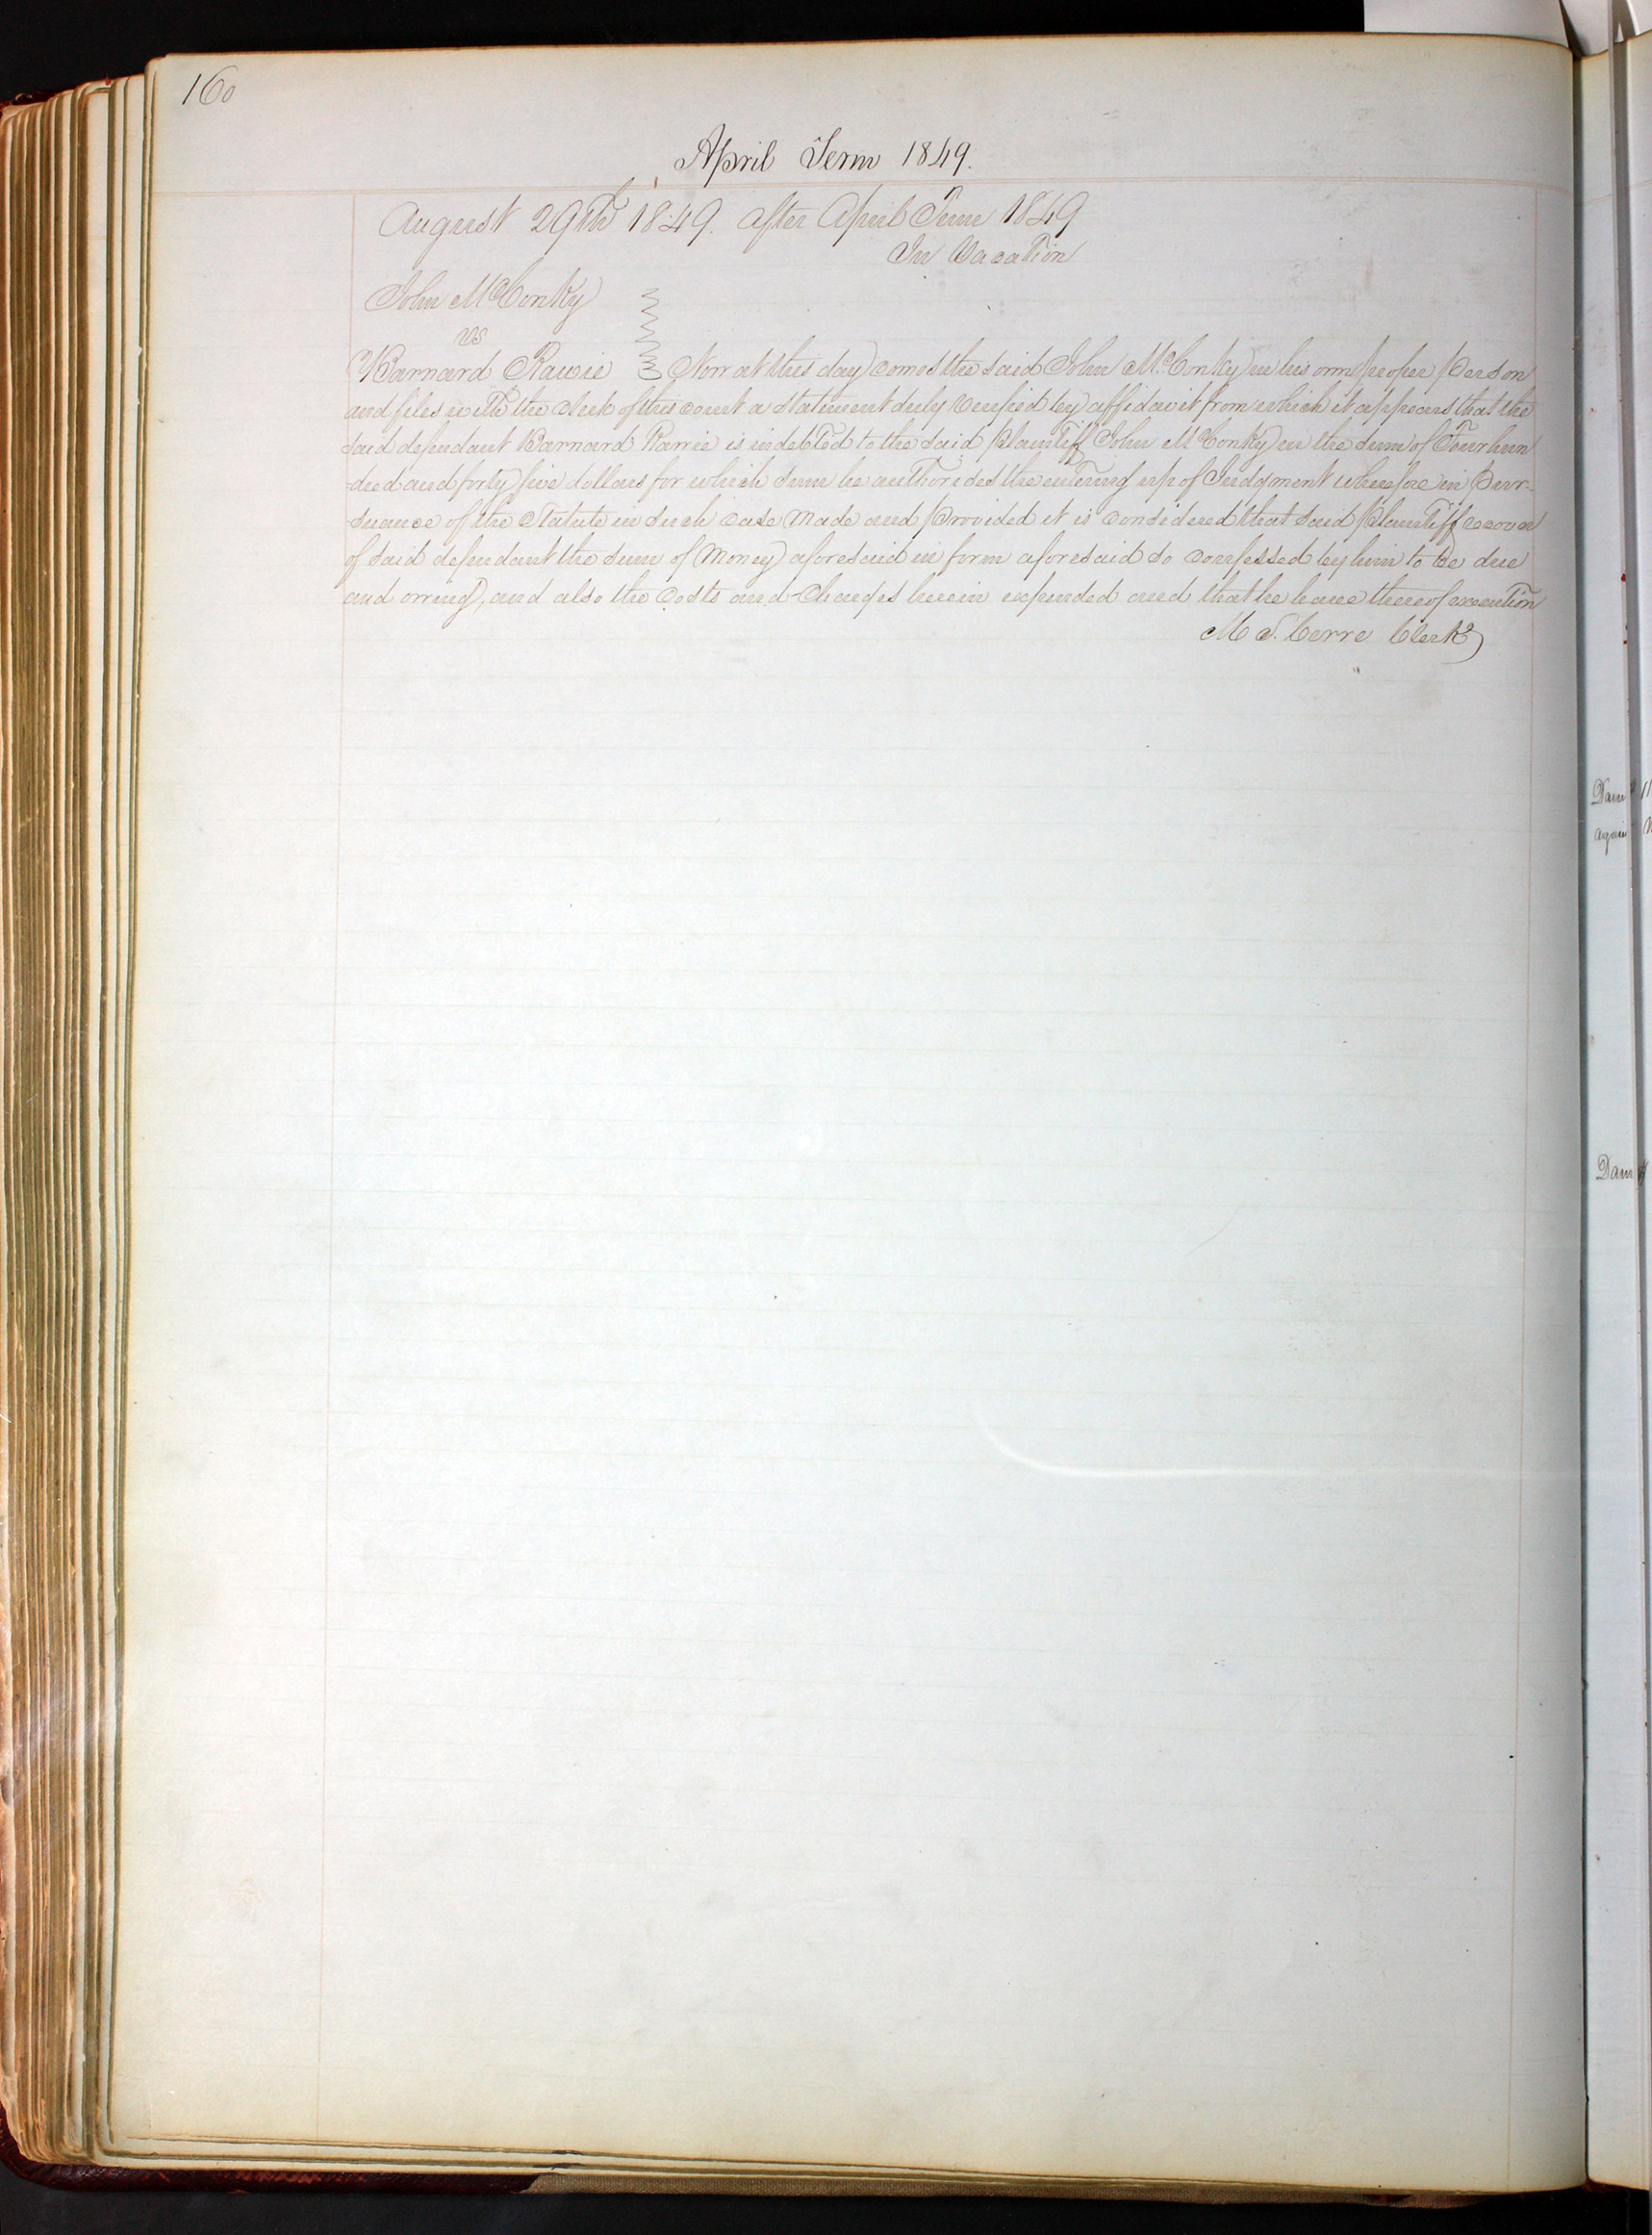 160
April Term 1849.
August 29th 1849. after April Term 1849
In Vacation
John McConky
vs
Barnard Rawie Now at this day comes the said John McConky in his own proper Person
and files with the Clerk of this court a statement duly verified by affidavit from which it appears that the
said defendant Barnard Rawie is indebted to the said Plaintiff John McConky in the sum of Four hun
dred and forty five dollars for which sum he authorises the entering up of Judgment wherefore in Pur-
suance of the Statute in such case Made and Provided it is considered that said Plaintiff recover
of said defendant the sum of Money aforesaid in form aforesaid so confessed by him to be due
and owing, and also the costs and charges herein expended and that he have thereof execution
M S. Cerre Clerk
Dam
again
Dam